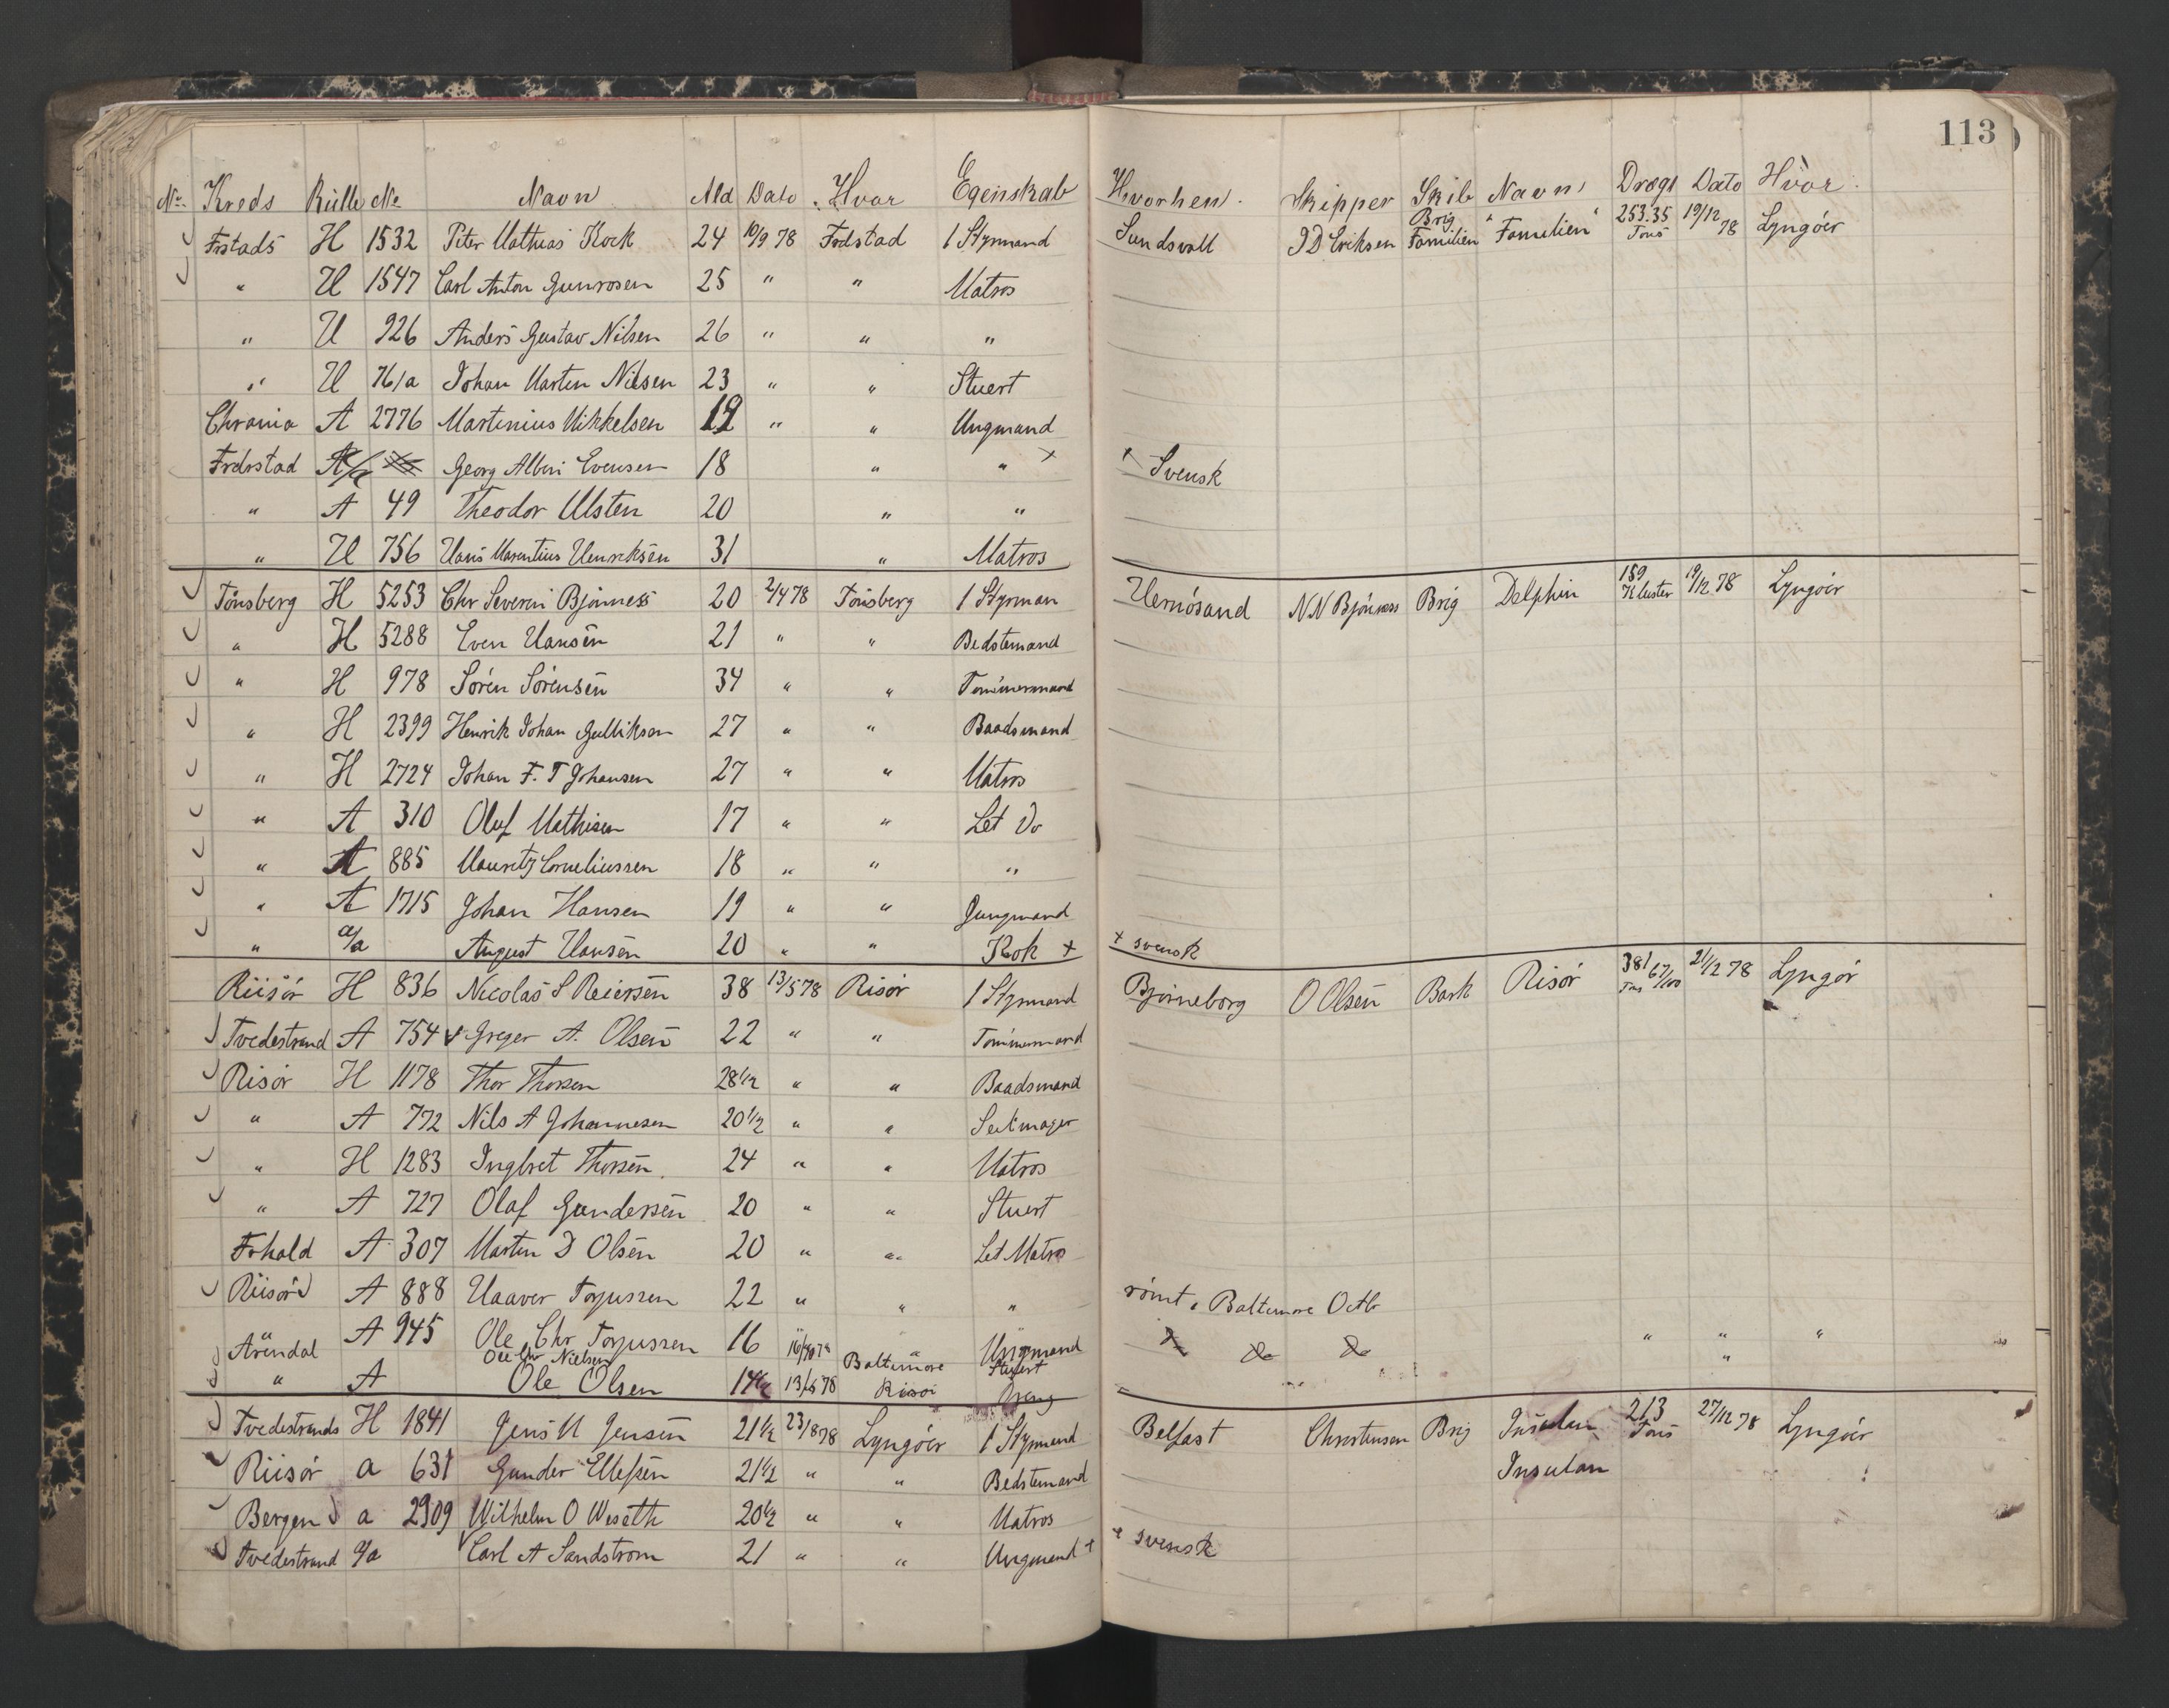 113
No. Kreds Rulle No Navn Ald Dato Hvar Egenskab Hvorhen. Skipper Skib Navn Drægt Dato Hvor.
Frstads H 1532 Peter Mathias Kock 24 10/9 78 Fredstad 1 Styrmand Sundsvall I D Eriksen Brig Familien "Familien" 253.35 Tons 19/12 78 Lyngöer
" H 1547 Carl Anton Gunrosen 25 " " Matros
" H 926 Anders Gustav Nilsen 26 " " "
" H 76/a Johan Martin Nilsen 23 " " Stuert
Chrania A 2776 Martinius Mikkelsen 19 " " Ungmand
Fredrstad A/a Georg Albin Evensen 18 " " + + Svensk
" A 49 Theodor Ulsten 20 " "
" H 756 Hans Marentius Henriksen 31 " Matros
Tönsberg H 5253 Chr Severin Bjönness 20 2/4 78 Tönsberg 1 Styrman Hernösand N N Bjönness Brig Delphin 159 Kluster 19/12 78 Lyngöer
" H 5288 Even Hansen 21 " " Bedstemand
" H 978 Sören Sörensen 34 " " Tömmermand
" H 2399 Henrik Johan Gulliksen 27 " " Baadsmand
" H 2724 Johan F. T Johansen 27 " " Matros
" A 310 Oluf Mathisen 17 " " Let Do
" A 885 Mauritz Corneliussen 18 " " "
" A 1715 Johan Hansen 19 " " Jungmand
" a/a August Hansen 20 " " Kok + + svensk
Riisör H 836 Nicolas S Reiersen 38 13/5 78 Risör 1 Styrmand Bjørneborg O Olsen Bark Risör 381 67/100 Tns 21/12 78 Lyngör
Tvedestrand A 754 Greger A. Olsen 22 " " Tömmermand
Risör H 1178 Thor Thorsen 28 1/2 " " Baadsmand
" A 772 Nils A Johannesen 20 1/2 " " Seilmager
" H 1283 Inglret Thorsen. 24 " " Matros
" A 727 Olaf Gundersen 20 " " Stuert
Frhald A 307 Martin D Olsen 20 " " Let Matro
Riisör A 888 Haaver Torjussen 22 " " " römt, Baltimore Octb
" A 945 Ole Chr Torjussen 16 " " Ungmand " " "
Arendal Ole Chr Nielsen Baltimore Stuert "
" A Ole Olsen 14 1/2 13/5 78 Risör Dreng
Tvedestrands H 1841 Jens M Jensen 21 1/2 23/8 78 Lyngöer 1 Styrmand Belfast Christensen Brig Insulan 213 Tons 27/12 78 Lyngöer
Riisör a 631 Gunder Ellefsen 21 1/2 " " Bedstemand Insulan
Bergen a 2909 Wilhelm O Weseth 20 1/2 " " Matros
Tvedestrand a/a Carl A Sandstrom 21 " " Ungmand + + svensk